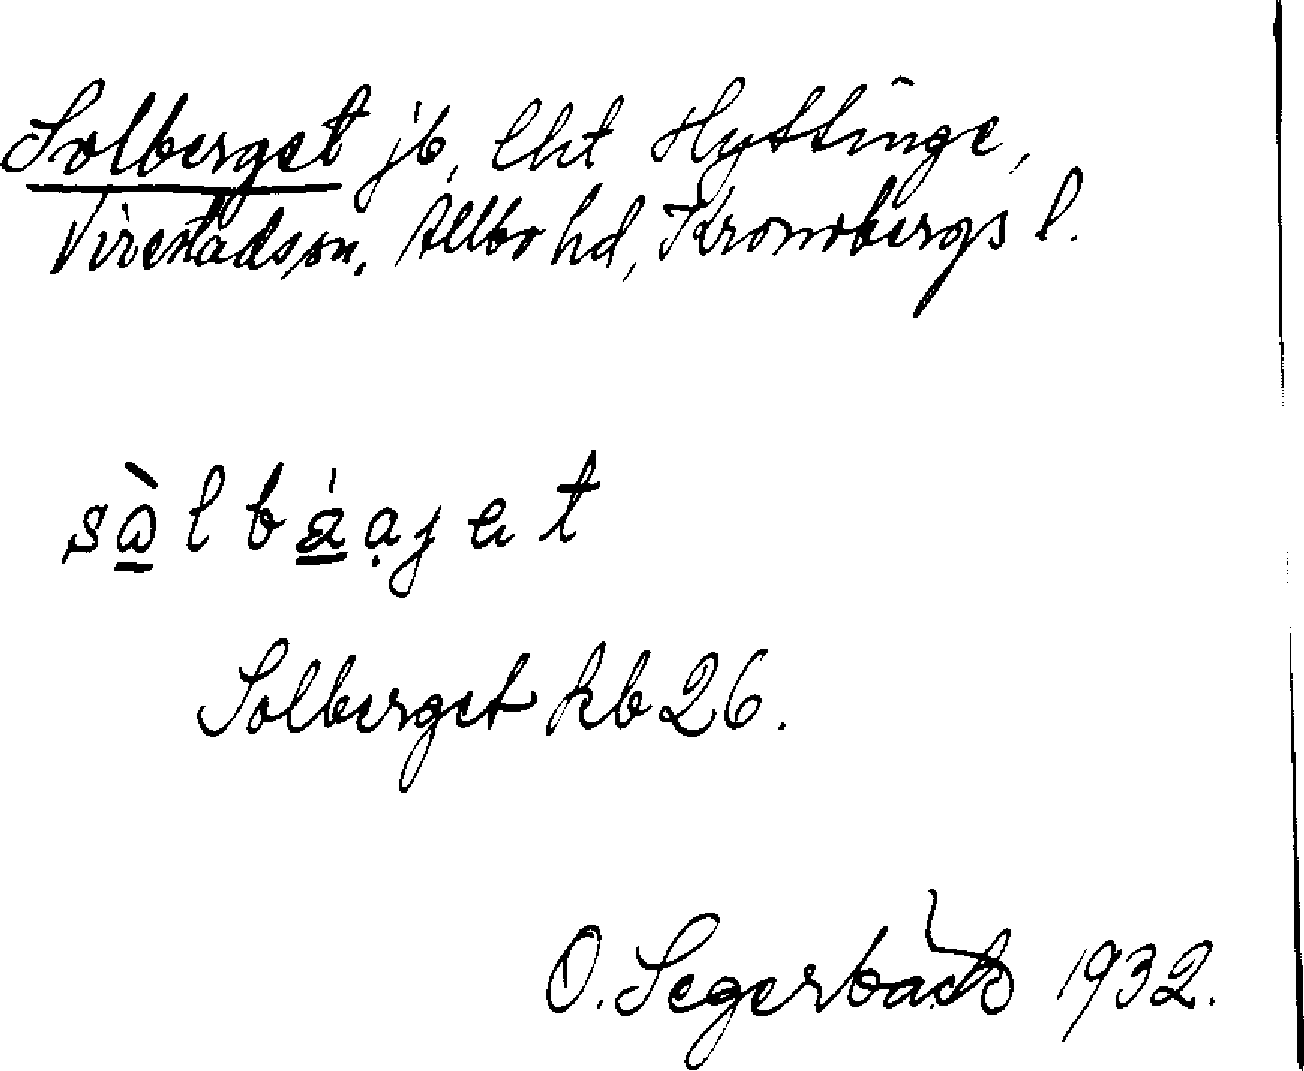 Solberget jb, lht Hyttinge,
Virestads sn, Allbo hd, Kronobergs l.
Solberget kb 26.
O. Segerbäck 1932.